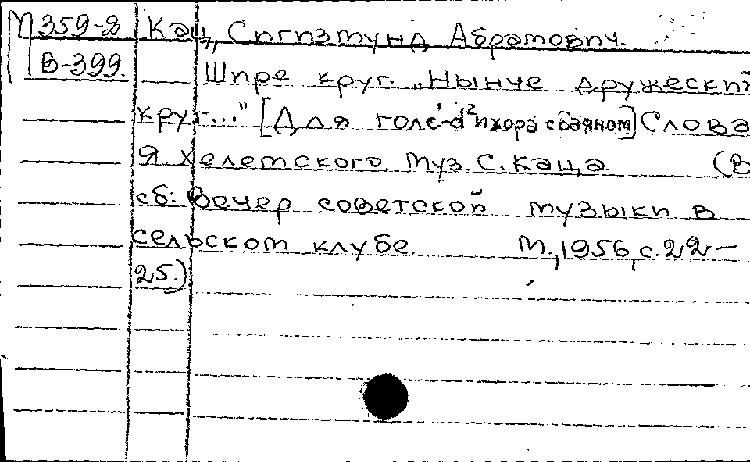 М 359-2 Кац, Сигизмунд Абрамович.
В-399. Шире круг. „Нынче дружеский
круг..." [Для голоса и хора с баяном] Слова
Я. Хелемского. Муз. С. Каца (В
сб: Вечер советской музыки в
сельском клубе М., 1956, с. 22-
25.)